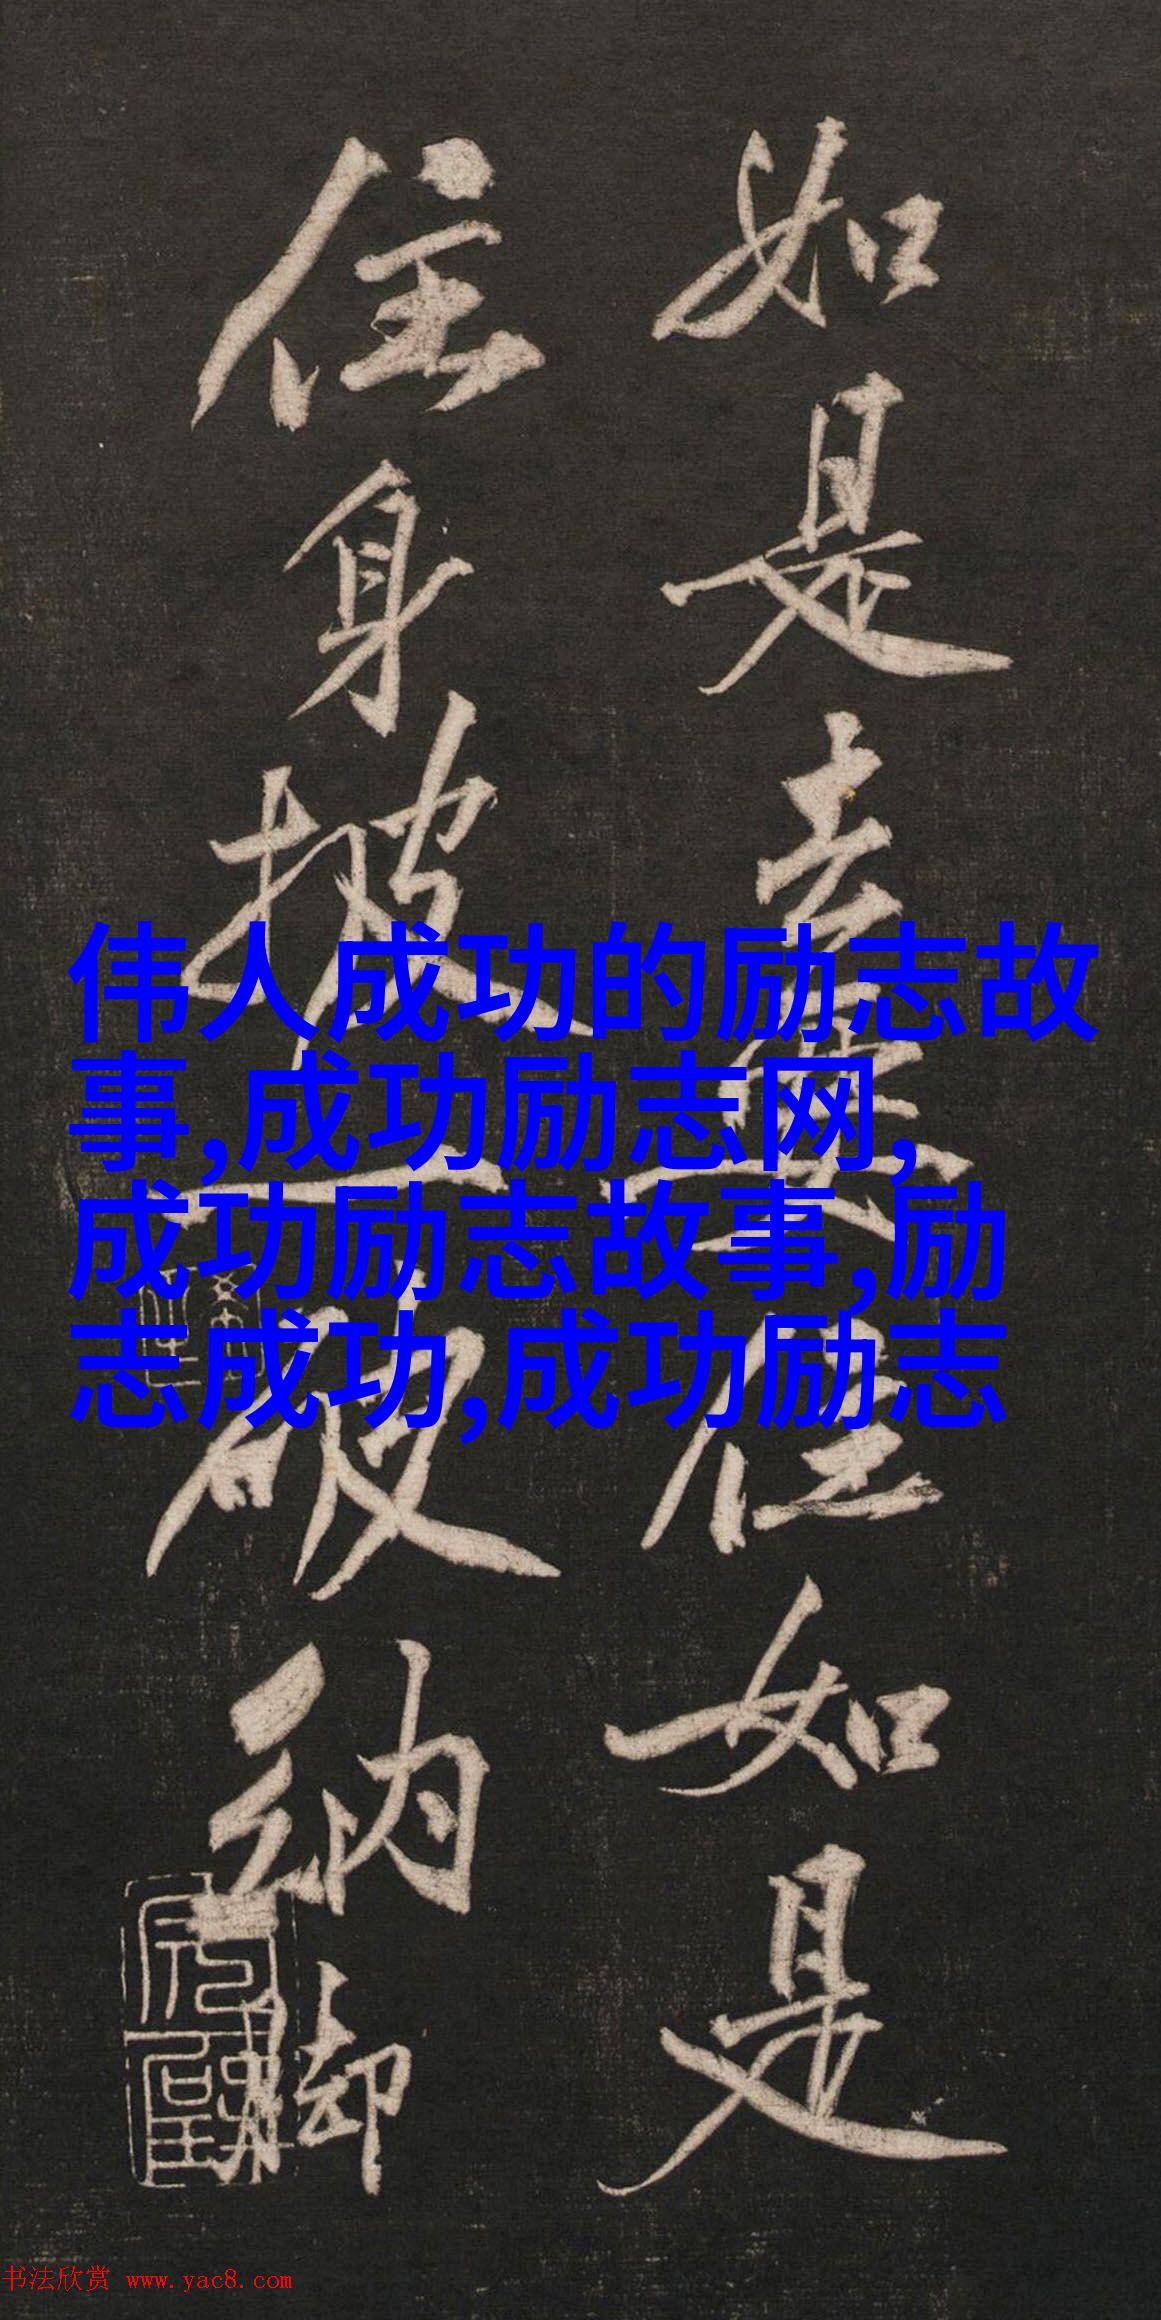 如是臺住如是
住身披一破納脚
伟人成功的励志故
事,成功励志网,
成功励志故事,励
志成功,成功励志
书法欣赏 www.yac8.com